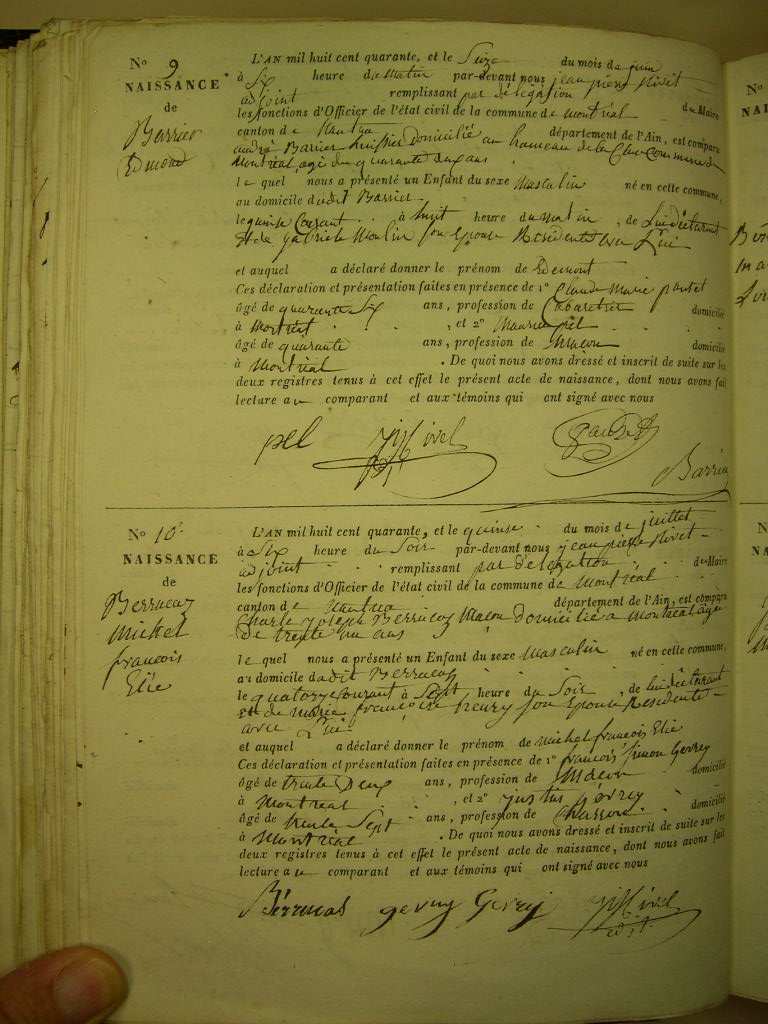 No 9
NAISSANCE
de
Barrier
Edmond
L'AN mil huit cent quarante, et le Seize du mois de juin
à Six heure du Matin par-devant nous jean pierre Nivet
adjoint remplissant par délégation
les fonctions d'Officier de l'état civil de la commune de Montréal du Maire
canton de Nantua département de l'Ain, est comparu
andré Barrier huissier domicilié au hameau de la Commune de
Montréal, agé de quarante deux ans
le quel nous a présenté un Enfant du sexe Masculin né en cette commune,
au domicile dudit Barrier
le quinse Courant à huit heure du matin, de lui déclarant
Et de gabriele Moulin son Epouse Residente avec Lui
et auquel a déclaré donner le prénom de Edemont
Ces déclaration et présentation faites en présence de 1o Claude Marie
âgé de quarante Six ans, profession de Cabaretier domicilié
à Montréal, et 2o pel
âgé de quarante ans, profession de Macon domicilié
à Montréal. De quoi nous avons dressé et inscrit de suite sur les
deux registres tenus à cet effet le présent acte de naissance, dont nous avons fait
lecture au comparant et aux témoins qui ont signé avec nous
pel
Barrier
No 10
NAISSANCE
de
Berrucaz
Michel
francois
Elie
L'AN mil huit cent quarante, et le quinse du mois de juillet
à Six heure du Soir par-devant nous jean pierre Nivet
adjoint remplissant par délégation du Maire
les fonctions d'Officier de l'état civil de la commune de Montréal
canton de Nantua département de l'Ain, est comparu
Charle joseph Berrucaz Macon domicilié a Montréal âgé
De trente un ans
le quel nous a présenté un Enfant du sexe Masculin né en cette commune,
au domicile dudit Berrucaz
le quatorze courant à Sept heure du Soir, de lui déclarant
Et de Marie françoise heenry son Epouse Residente
avec Lui
et auquel a déclaré donner le prénom de Michel françois Elie
Ces déclaration et présentation faites en présence de 1o françois Simon Gevrey
âgé de trente Deux ans, profession de Macon domicilié
à Montréal, et 2o justin Gevrey
âgé de trente Sept ans, profession de Charron domicilié
à Montréal. De quoi nous avons dressé et inscrit de suite sur les
deux registres tenus à cet effet le présent acte de naissance, dont nous avons fait
lecture au comparant et aux témoins qui ont signé avec nous
Bérrucas gevrey Gevrey